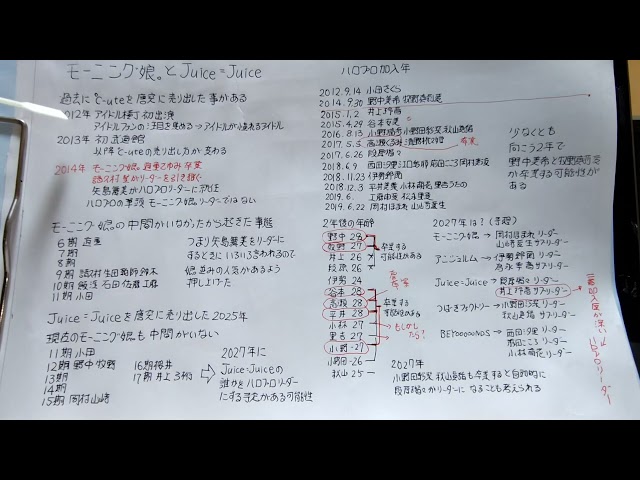 モーニング娘。とJuice=Juice
過去に℃-uteを唐突に売り出した事がある
2012年 アイドル横丁初出演
アイドルファンの注目を集める→アイドルが憧れるアイドル
2013年 初武道館
以降℃-uteの売り出し方が変わる
2014年 モーニング娘。道重さゆみ卒業
譜久村聖がリーダーを引き継ぐ
矢島舞美がハロプロリーダーに就任
ハロプロの筆頭 モーニング娘。リーダーではない
モーニング娘。の中間がいなかったから起きた事態
6期 道重
7期
8期
9期 譜久村 生田 鞘師 鈴木
10期 飯窪 石田 佐藤 工藤
11期 小田
つまり矢島舞美をリーダーに
するときにいろいろ言われるので
娘。並みの人気があるよう
押し上げた
Juice=Juiceを唐突に売り出した2025年
現在のモーニング娘。も中間がいない
11期 小田
12期 野中 牧野
13期
14期
15期 岡村 山﨑
16期 櫻井
17期 井上 弓桁
⇒
2027年に
Juice=Juiceの
誰かをハロプロリーダー
にする予定がある可能性
ハロプロ加入年
2012.9.14 小田さくら
2014.9.30 野中美希 牧野真莉愛
2015.1.2 井上玲音
2015.4.29 谷本安美
2016.8.13 小野瑞歩 小野田紗栞 秋山眞緒
2017.5.5 高瀬くるみ 清野桃々姫
卒業
2017.6.26 段原瑠々
2018.11.23 伊勢鈴蘭
2018.12.3 平井美葉 小林萌花 里吉うたの
2019.6.2 工藤由愛 松永里愛
2019.6.22 岡村ほまれ 山﨑夢羽
少なくとも
向こう2年で
野中美希と牧野真莉愛
が卒業する可能性が
ある
2年後の年齢
野中 28
牧野 26
井上 26
段原 26
伊勢 24
谷本 28
高瀬 28
平井 28
小林 27
里吉 27
小野 27
小野田 26
秋山 25
卒業する
可能性がある
卒業
卒業する
可能性ある
もしかし
たら?
2027年は?(予想)
モーニング娘。→ 岡村ほまれ リーダー
山﨑夢羽 サブリーダー
アンジュルム → 伊勢鈴蘭 リーダー
為永幸音 サブリーダー
Juice=Juice → 段原瑠々 リーダー
井上玲音 サブリーダー
つばきファクトリー → 小野田紗栞 リーダー
秋山眞緒 サブリーダー
BEYOOOOONDS → 西田汐里 リーダー
小林萌花 リーダー
一番加入歴が深い=ハロプロリーダー
2027年
小野田紗栞 秋山眞緒も卒業すると自動的に
段原瑠々がリーダーになることも考えられる